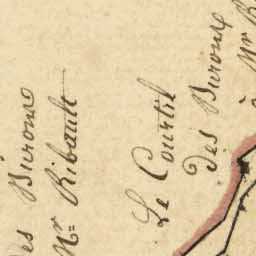 des Durons
Mr Ribault
Le Courtil
des Durons
à Mr R